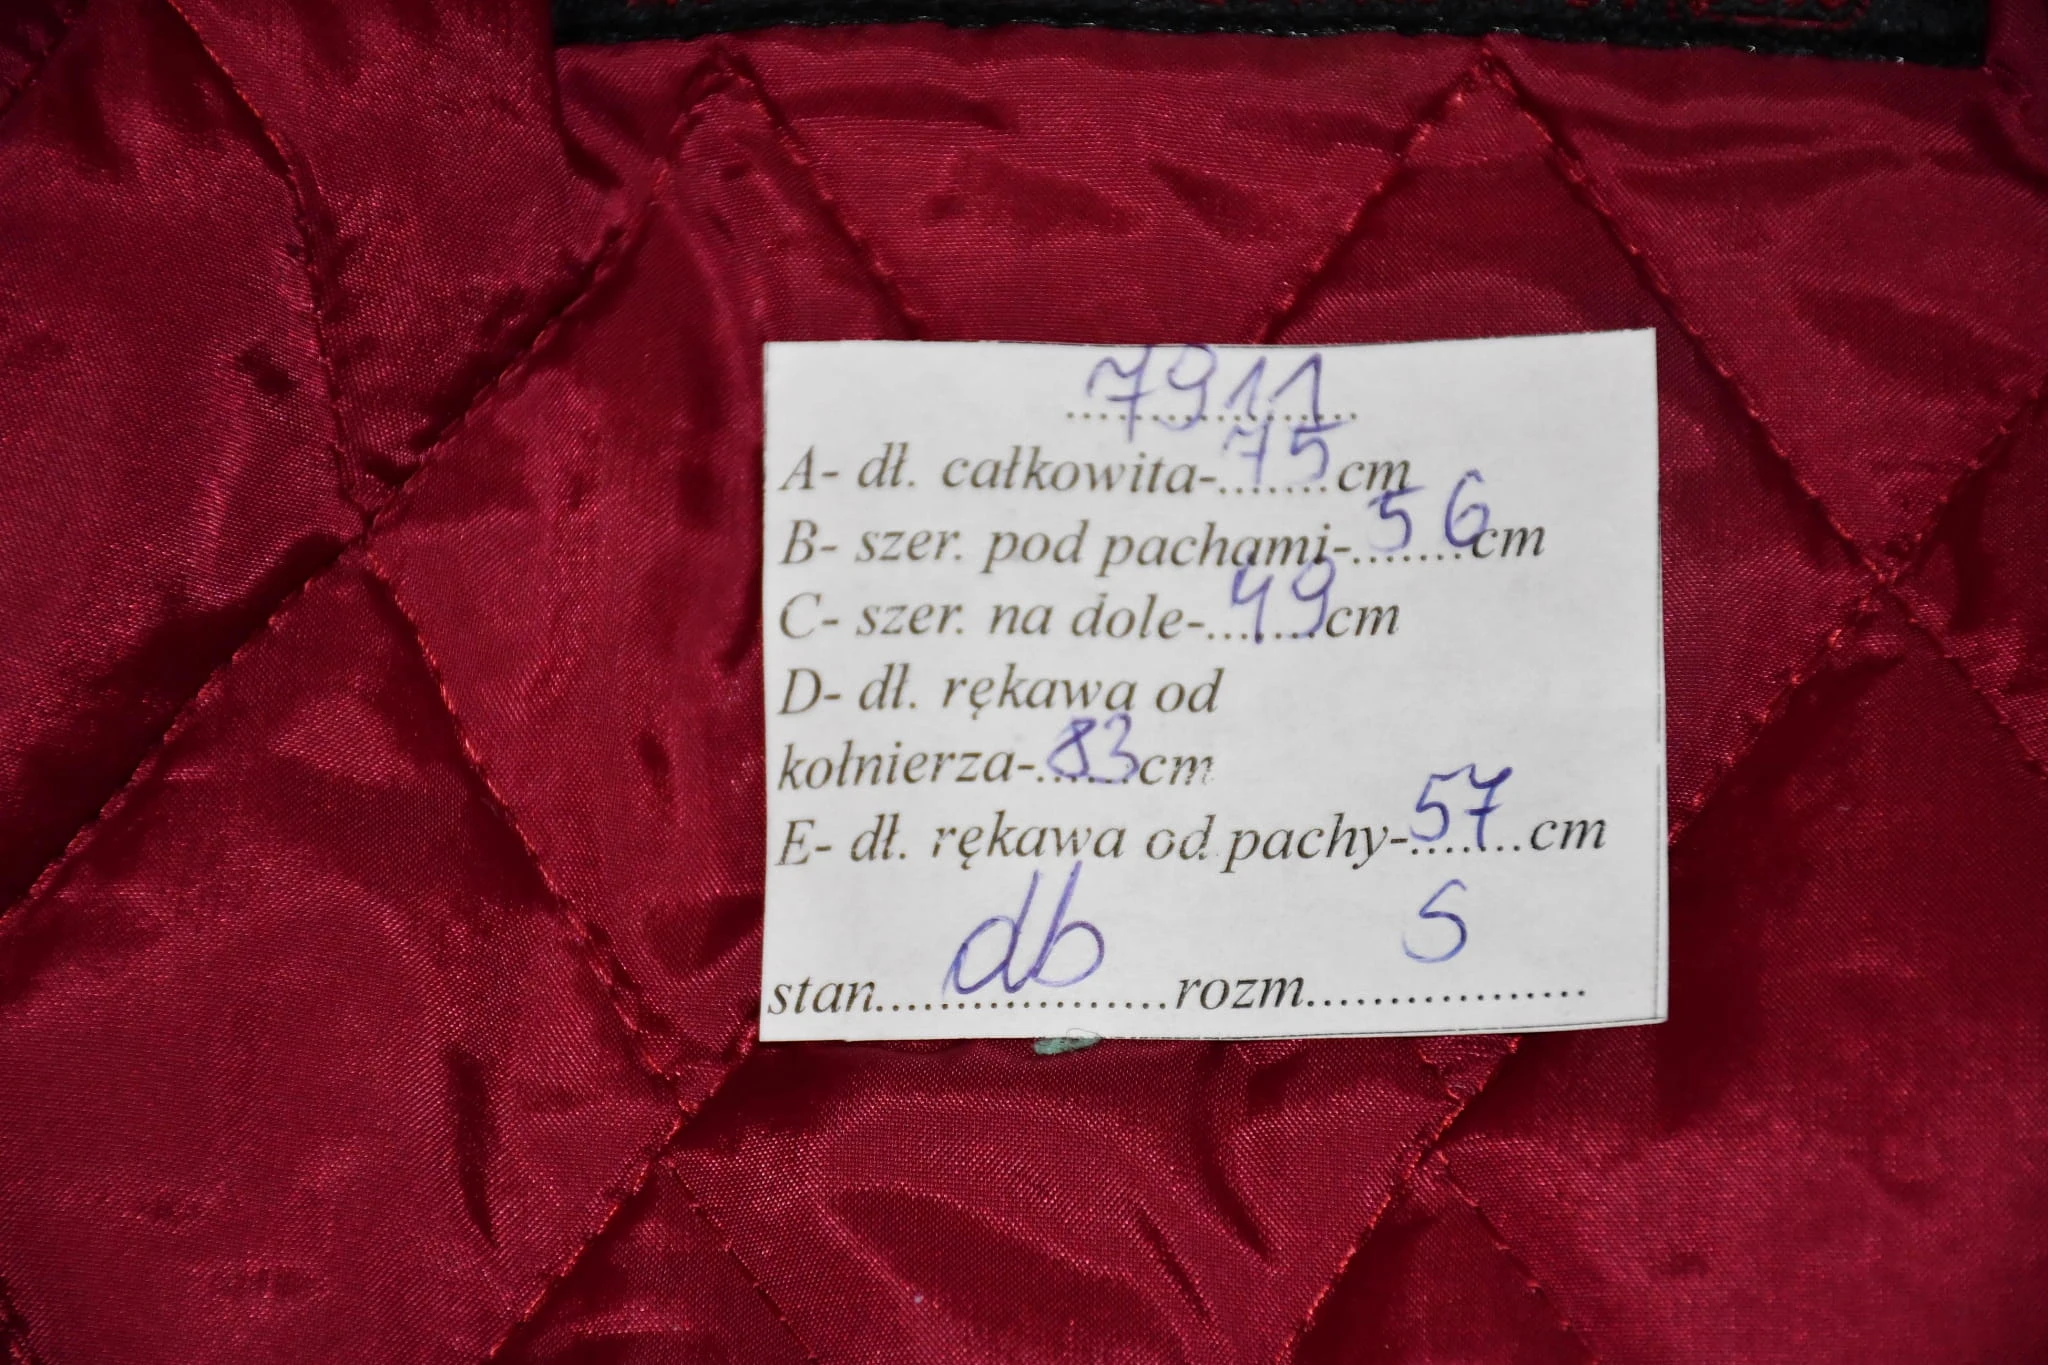 7911
A- dł. całkowita-75cm
B- szer. pod pachami-56cm
C- szer. na dole-49cm
D- dł. rękawa od
kołnierza-83cm
E- dł. rękawa od pachy-57cm
S
stan db rozm